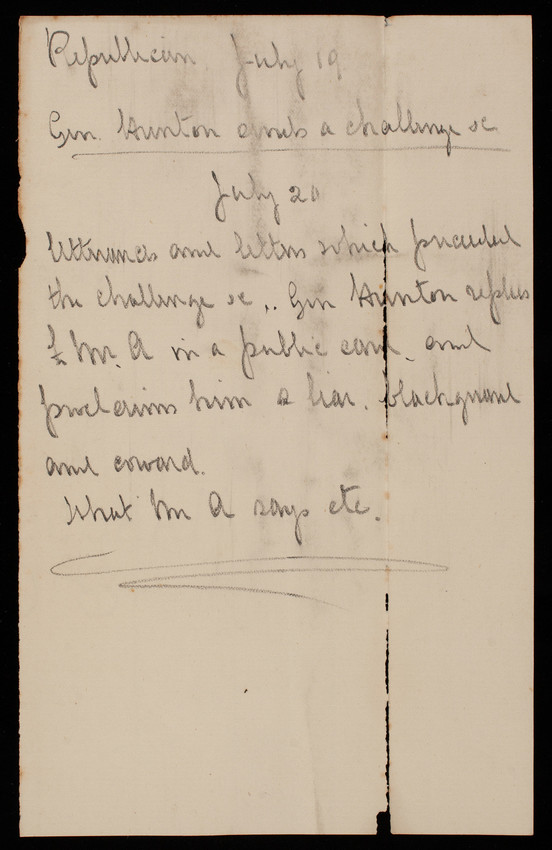 Republican July 19
Gen. Hunton sends a challenge &c
July 20
Utterances and letters which preceeded
the challenge &c .. Gen Hunton replies
to Mr. A in a public card. and
proclaims him a liar. blackguard
and coward.
What Mr A says etc.